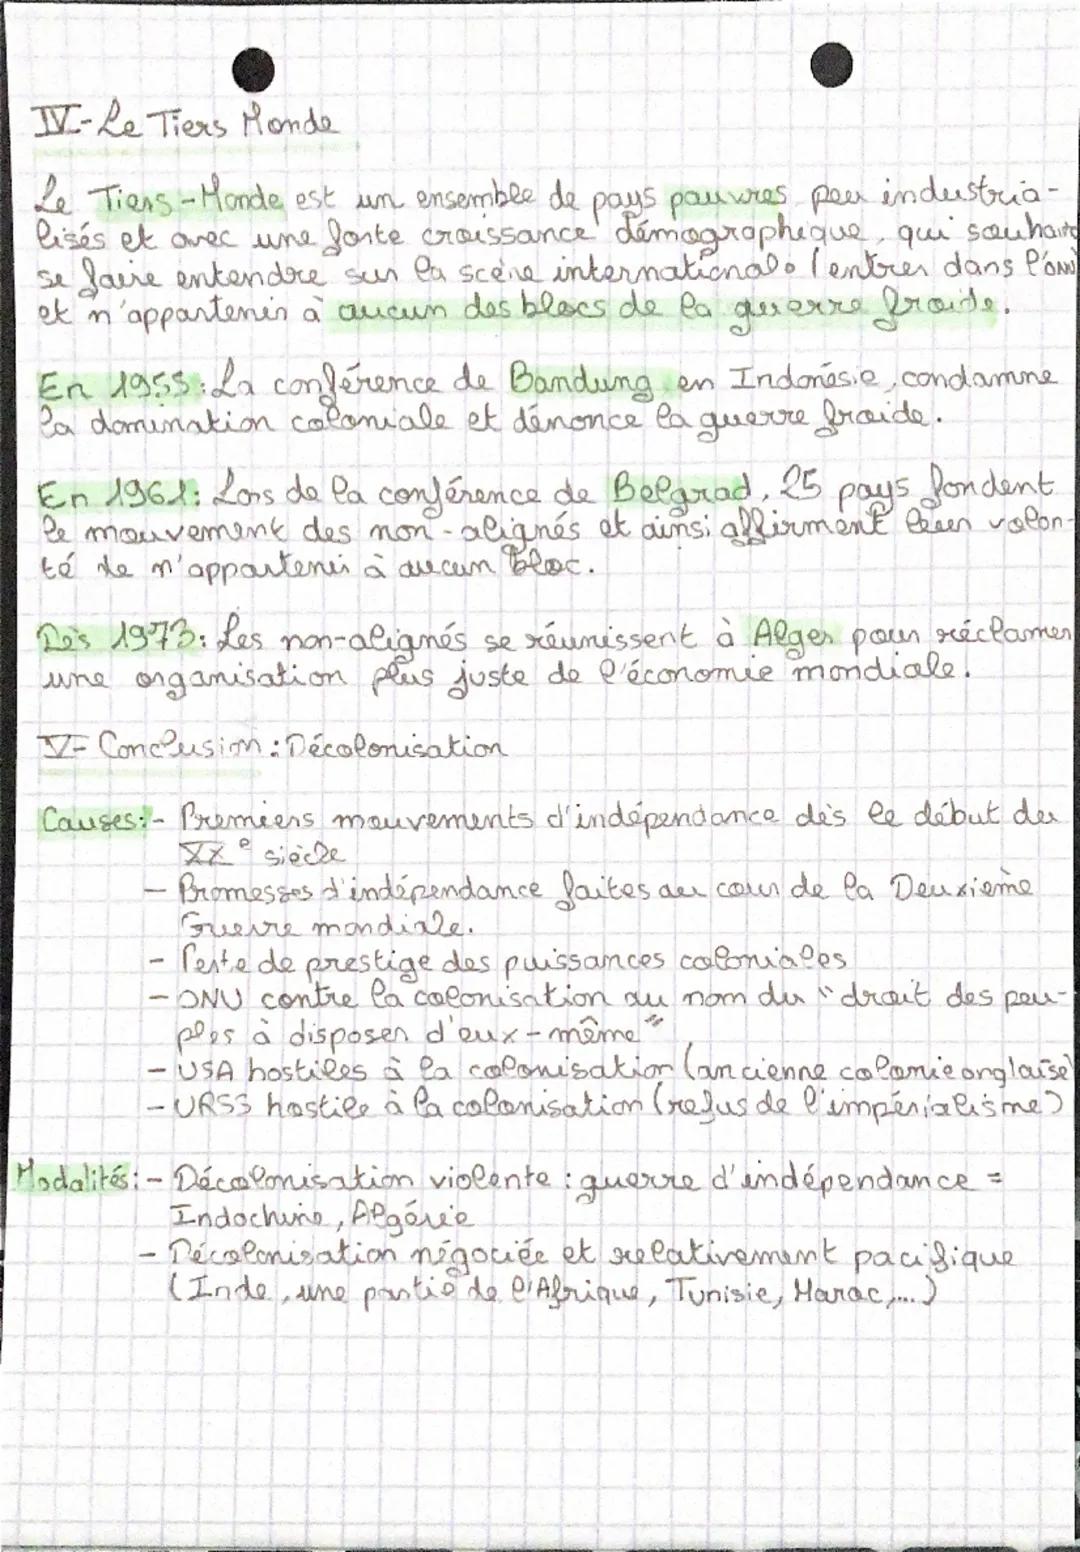 IV-Le Tiers Monde
Le Tiers-Monde est un ensemble de pays pauvres peu industria-
lisés et avec une forte croissance démographique, qui souhaite
se faire entendre sur la scène internationale (entrer dans l'ONU
et n'appartenir à aucun des blocs de la guerre froide.
En 1955: La conférence de Bandung en Indonésie, condamne
la domination coloniale et dénonce la guerre froide.
En 1961: Lors de la conférence de Belgrad, 25 pays fondent
le mouvement des non-alignés et ainsi affirment leur volon-
té de n'appartenir à aucun bloc.
Dès 1973: Les non-alignés se réunissent à Alger pour réclamer
une organisation plus juste de l'économie mondiale.
V- Conclusion: Décolonisation
Causes:- Premiers mouvements d'indépendance dès le début du
XXe siècle
- Promesses d'indépendance faites au cour de la Deuxième
Guerre mondiale.
- Perte de prestige des puissances coloniales
- ONU contre la colonisation au nom du "droit des peu-
ples à disposer d'eux-même"
- USA hostiles à la colonisation (ancienne colonie anglaise)
- URSS hostile à la colonisation (refus de l'impérialisme)
Modalités:- Décolonisation violente: guerre d'indépendance =
Indochine, Algérie
- Décolonisation négociée et relativement pacifique
(Inde, une partie de l'Afrique, Tunisie, Maroc,...)